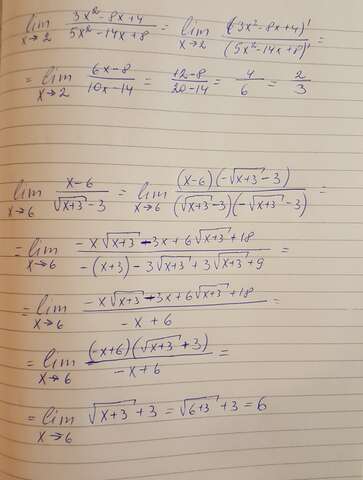 lim x→2 (3x²-8x+4)/(5x²-14x+8) = lim x→2 (3x²-8x+4)'/(5x²-14x+8)' =
= lim x→2 (6x-8)/(10x-14) = (12-8)/(20-14) = 4/6 2/3
lim x→6 (x-6)/(√(x+3)-3) = lim x→6 (x-6)(-√(x+3)-3)/((√(x+3)-3)(-√(x+3)-3)) =
= lim x→6 (-x√(x+3)-3x+6√(x+3)+18)/(-(x+3)-3√(x+3)+3√(x+3)+9) =
= lim x→6 (-x√(x+3)-3x+6√(x+3)+18)/(-x+6) =
= lim x→6 (-x+6)(√(x+3)+3)/(-x+6) =
= lim x→6 √(x+3)+3 = √(6+3)+3 = 6